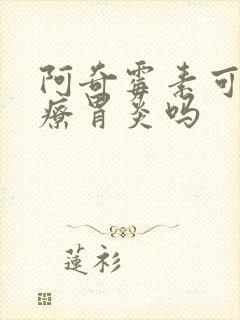 阿奇霉素可
療胃炎吗
蓮衫